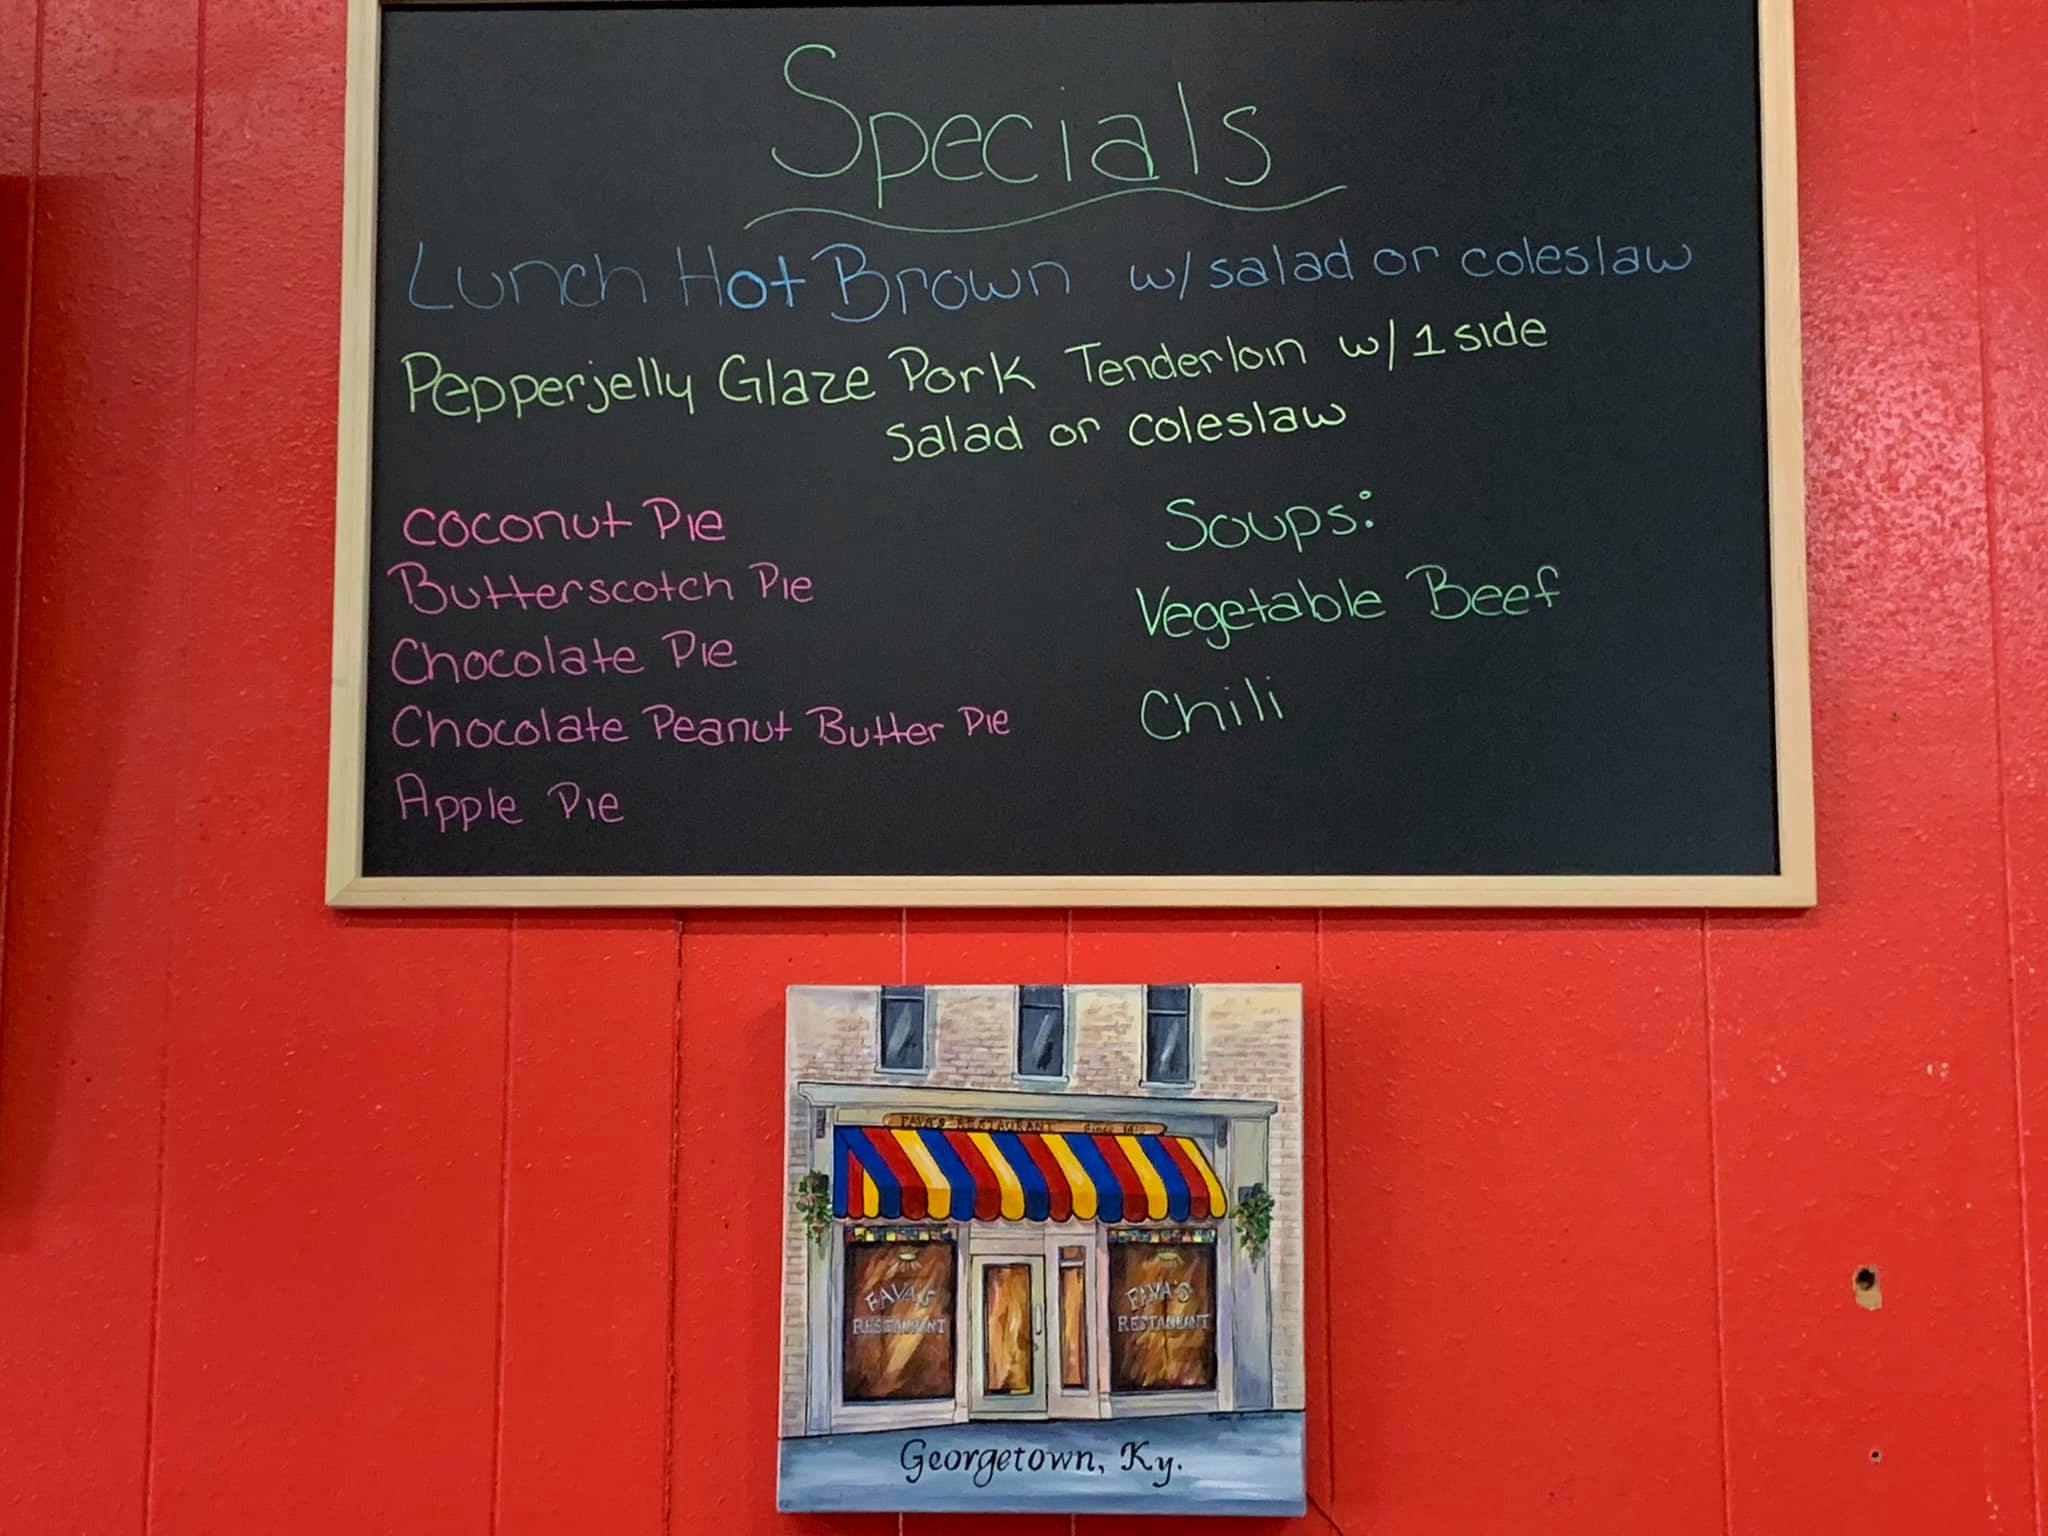 Specials
Lunch Hot Brown w/ salad or coleslaw
Pepperjelly Glaze Pork Tenderloin w/ 1 side
salad or coleslaw
Coconut Pie
Butterscotch Pie
Chocolate Pie
Chocolate Peanut Butter Pie
Apple Pie
Soups:
Vegetable Beef
Chili
FAVA'S RESTAURANT Since
FAVA'S
RESTAURANT
FAVA'S
RESTAURANT
Georgetown, Ky.